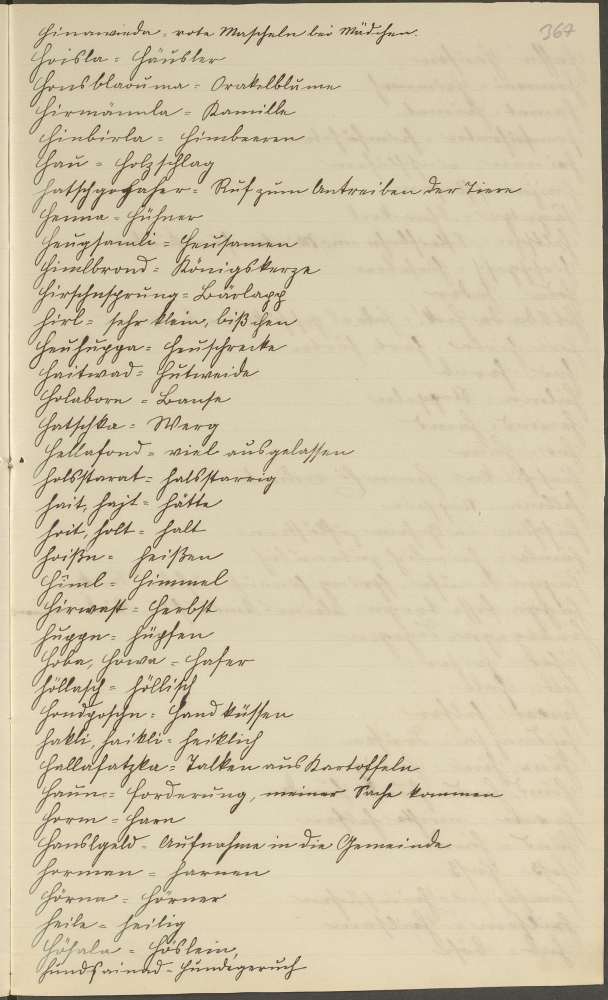 367
Hinawieda = rote Mascheln bei Mädchen.
Hoisla = Häusler
Honsblaouma = Orakelblume
Hirmännla = Kamille
Hinbirla = Himbeeren
Hau = Holzschlag
= Ruf zum Antreiben der Tiere
Henna = Hühner
Heugsamli = Heusamen
Himlbrond = Königskerze
Hirschnsprung = Bärlapp
hirl = sehr klein, bißchen
Heuhuppa = Heuschrecke
Haitwad = Hutweide
Holaborn = Banse
Hatschka = Werg
Hellafond = viel ausgelassen
holsstarat = halsstarrig
hait, hajt = hätte
hoit, holt = halt
hoißn = heißen
Himl = Himmel
Hirwast = Herbst
huppn = hüpfen
Hoba, Howa = Hafer
höllasch = höllisch
Hondposchn = Hand küssen
hakli, haikli = heiklich
Hallafatzka = Talken aus Kartoffeln
Haun = Forderung, meiner Sache kommen
Horm = Harn
Hanslgeld = Aufnahme in die Gemeinde
horman = harnen
Hörna = Hörner
heile = heilig
Hösala = Höslein
Hundsainad = Hundigeruch